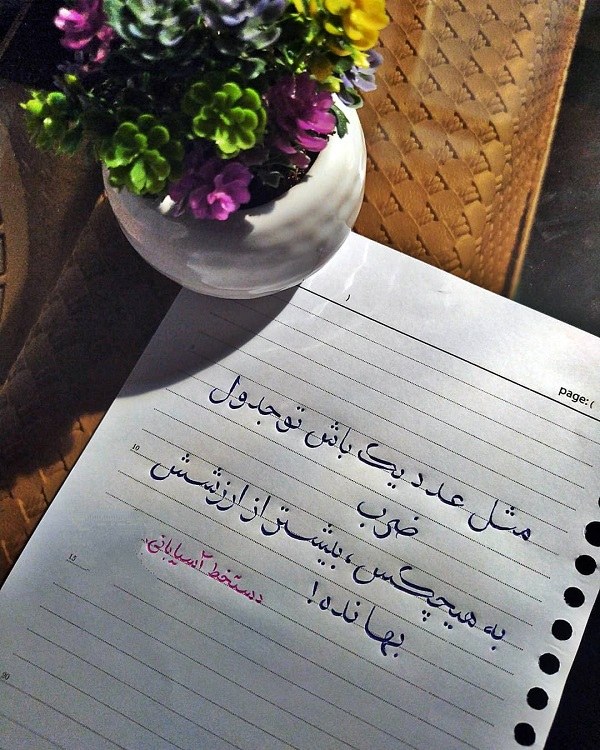 page: (
مثل عدد یک باش تو جدول
ضرب
به هیچکس، بیشتر از ارزشش
بها نده!
دستخط آسیابانی.
10
15
20